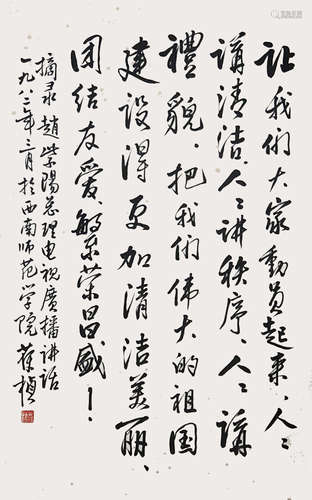 让我們大家動员起来、人〻
講清洁、人〻讲秩序、人〻講
禮貌、把我們伟大的祖国
建設得更加清洁美丽、
团结友爱、繁荣昌盛！
摘录趙紫陽总理电视廣播讲话
一九八二年三月於西南师范学院 葆楨